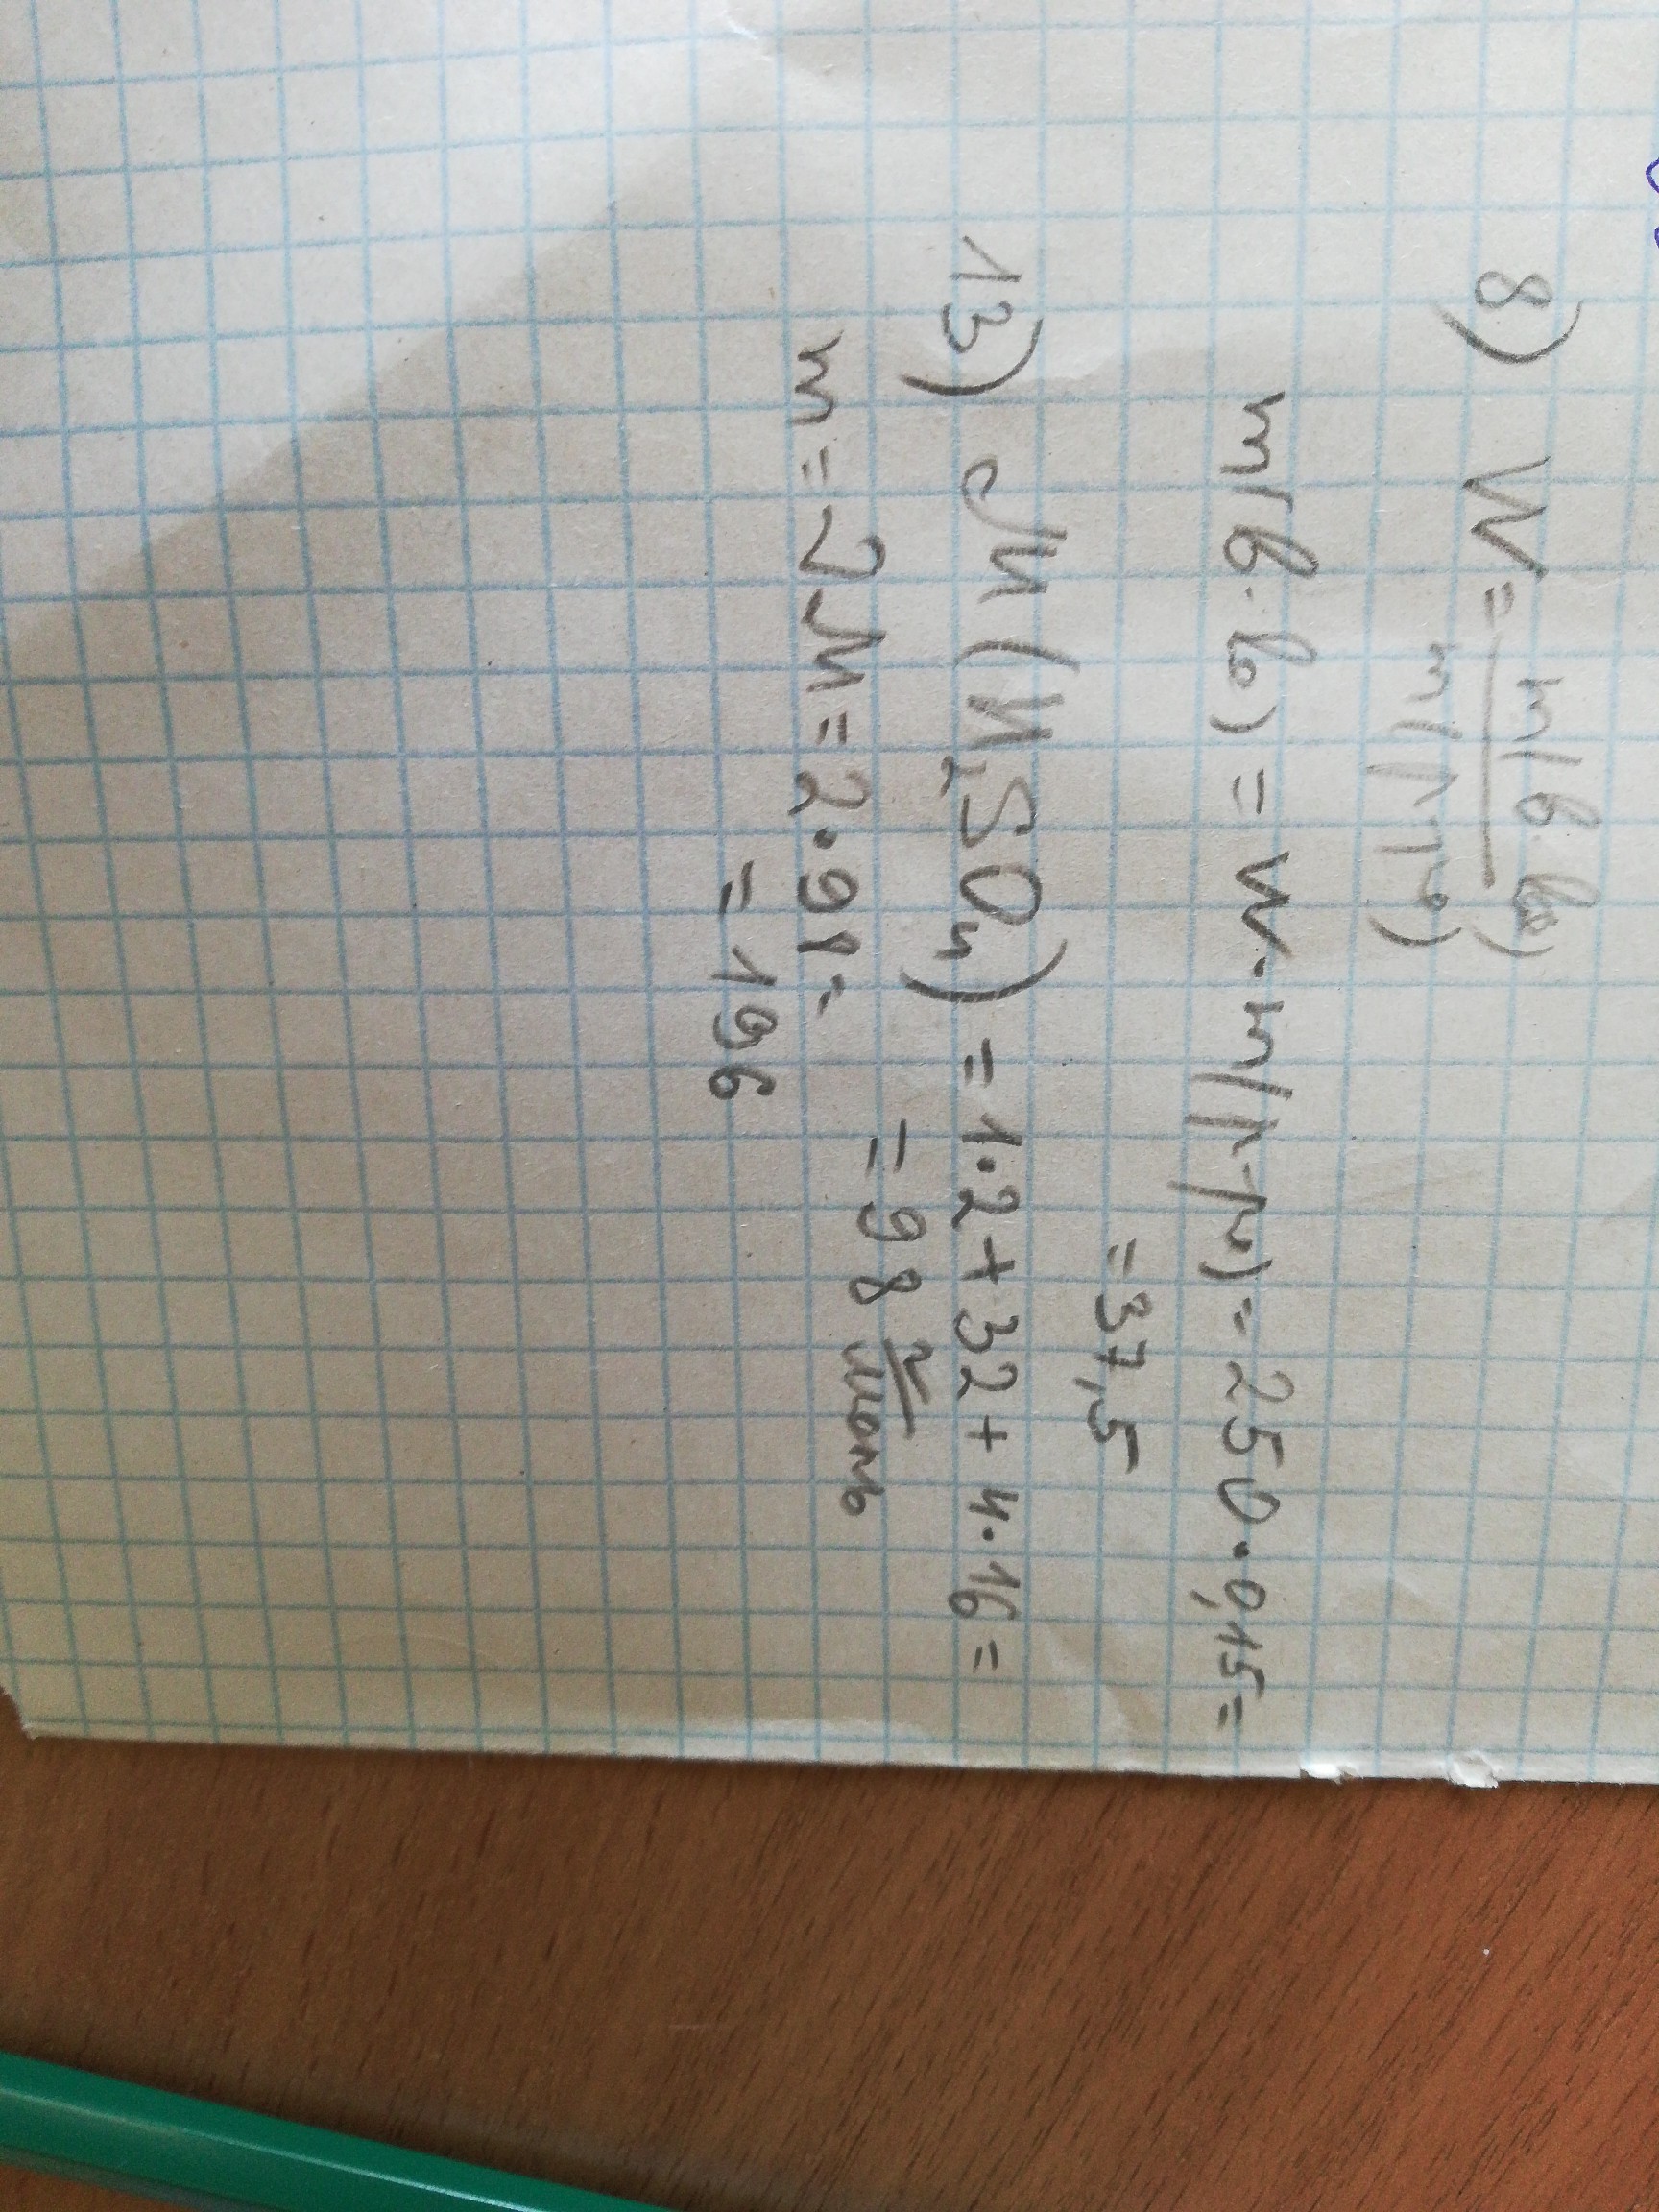 8) W = m(в.ва) / m(р-ра)
m(в.ва) = W · m(р-ра) = 250 · 0,15 =
= 37,5
13) M(H₂SO₄) = 1 · 2 + 32 + 4 · 16 =
= 98 г/моль
m = 2M = 2 · 98 =
= 196